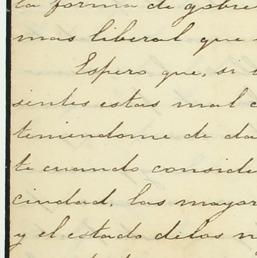 la forma de gobie
mas liberal que
Espero que, si
sientes estas mal
teniendome de da
te cuando conside
ciudad, las mayor
y el estado delos